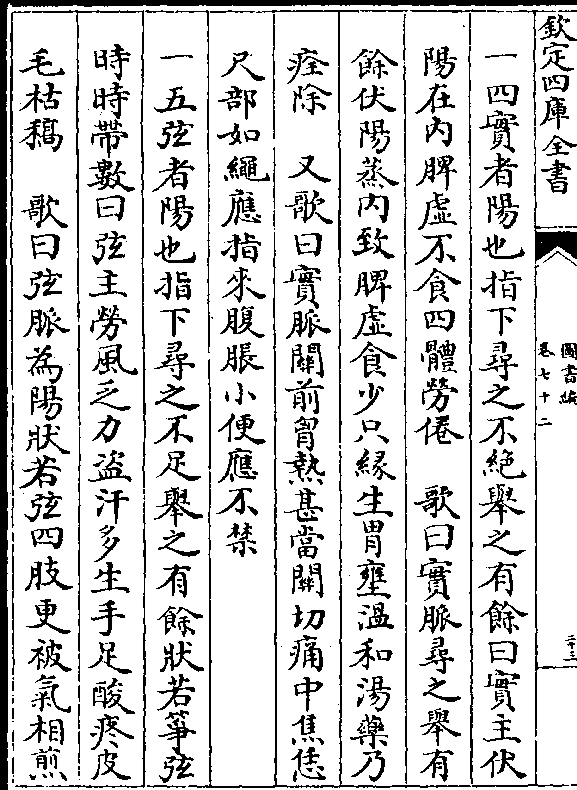 欽定四庫全書
圖書編
卷七十二
二十三
一四實者陽也指下尋之不絶舉之有餘曰實主伏
陽在内脾虛不食四體勞倦　歌曰實脈尋之舉有
餘伏陽蒸内致脾虛食少只緣生胃壅温和湯藥乃
痊除　又歌曰實脈關前胷熱甚當關切痛中焦恁
尺部如繩應指來腹脹小便應不禁
一五弦者陽也指下尋之不足舉之有餘狀若箏弦
時時帶數曰弦主勞風乏力盗汗多生手足酸疼皮
毛枯槁　歌曰弦脈為陽狀若弦四肢更被氣相煎